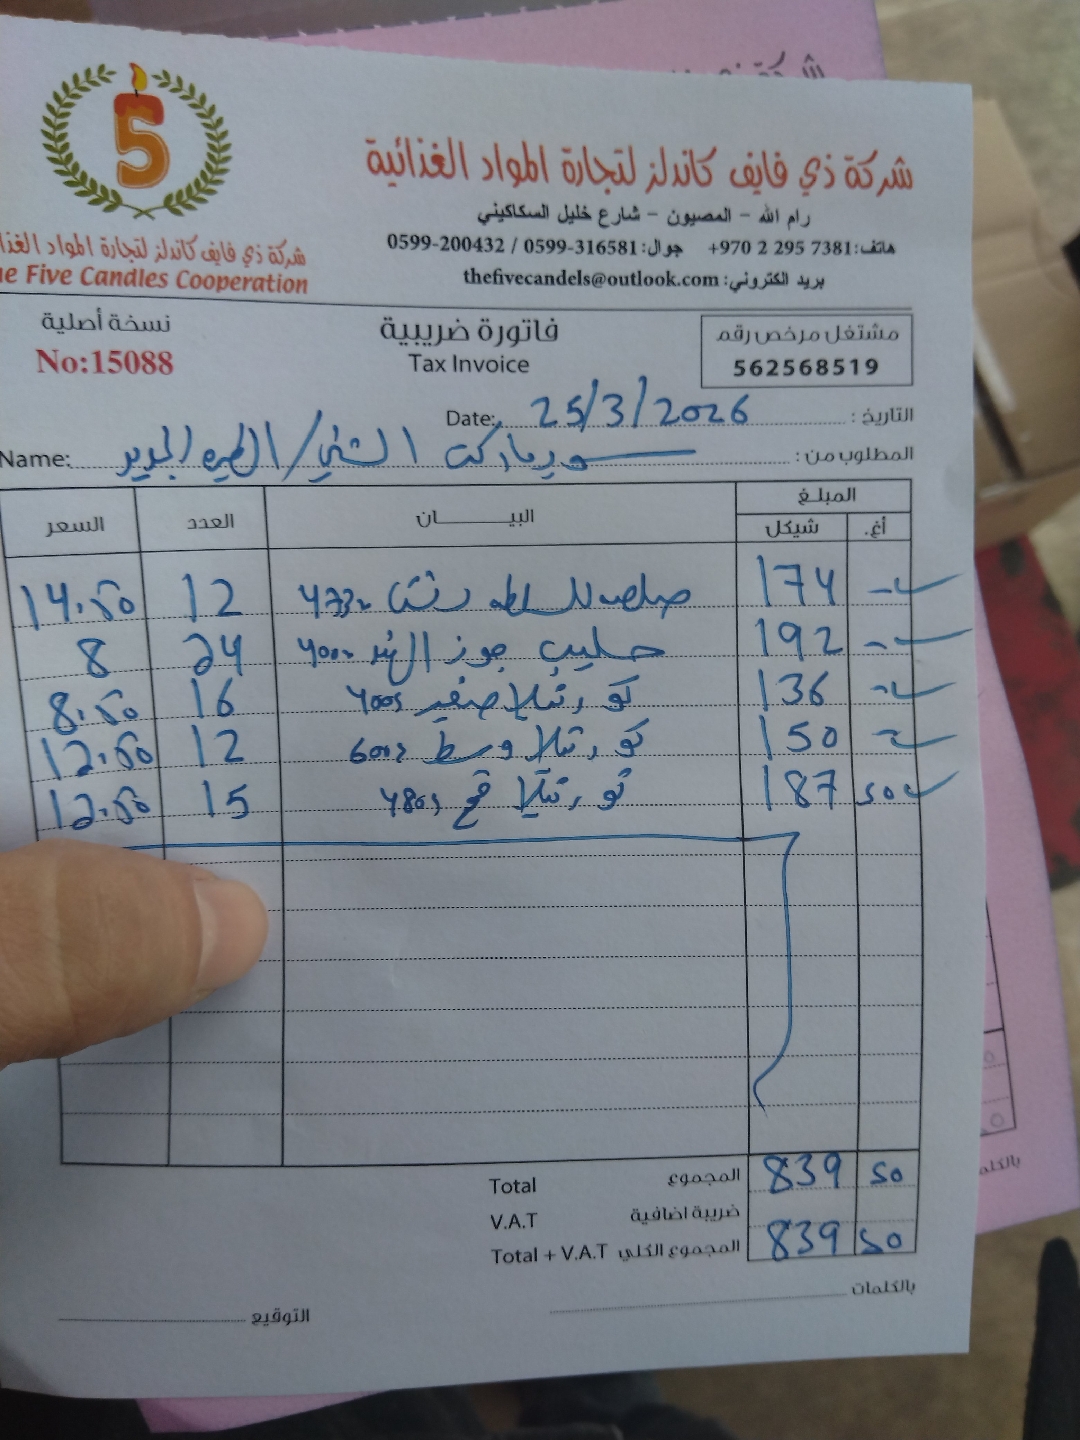 شركة ذي فايف كاندلز لتجارة المواد الغذائية
رام الله - المصيون - شارع خليل السكاكيني
هاتف: +970 2 295 7381 جوال: 0599-316581 / 0599-200432
بريد الكتروني: thefivecandels@outlook.com
5
شركة ذي فايف كاندلز لتجارة المواد الغذا
e Five Candles Cooperation
مشتغل مرخص رقم
562568519
فاتورة ضريبية
Tax Invoice
نسخة أصلية
No:15088
التاريخ: 25/3/2026 Date:
المطلوب من: Name:
المبلغ
أغ. شيكل البيــــــان العدد السعر
- 174 12 14.50
- 192 حليب جوز الهند 400 24 8
- 136 صغير 16 8.50
- 150 وسط 12 12.50
50 187 قمح 15 12.50
Total المجموع 839 50
V.A.T ضريبة اضافية
Total + V.A.T المجموع الكلي 839 50
بالكلمات
التوقيع